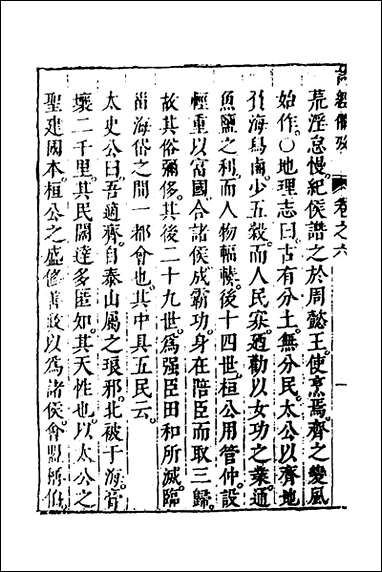 詩經備攷 卷之六 一
荒淫怠慢。紀侯譖之於周懿王。使烹焉。齊之變風
始作。○地理志曰。古有分土。無分民。太公以齊地
負海舄鹵。少五穀。而人民寡。迺勸以女功之業。通
魚鹽之利。而人物輻輳。後十四世。桓公用管仲。設
輕重以富國。合諸侯成霸功。身在陪臣而取三歸。
故其俗彌侈。其後二十九世。爲强臣田和所滅。臨
甾海岱之間一都會也。其中具五民云。
太史公曰。吾適齊。自泰山屬之琅邪。北被于海。膏
壤二千里。其民闊達多匿知。其天性也。以太公之
聖建國本。桓公之盛脩善政以爲諸侯。會盟稱伯。